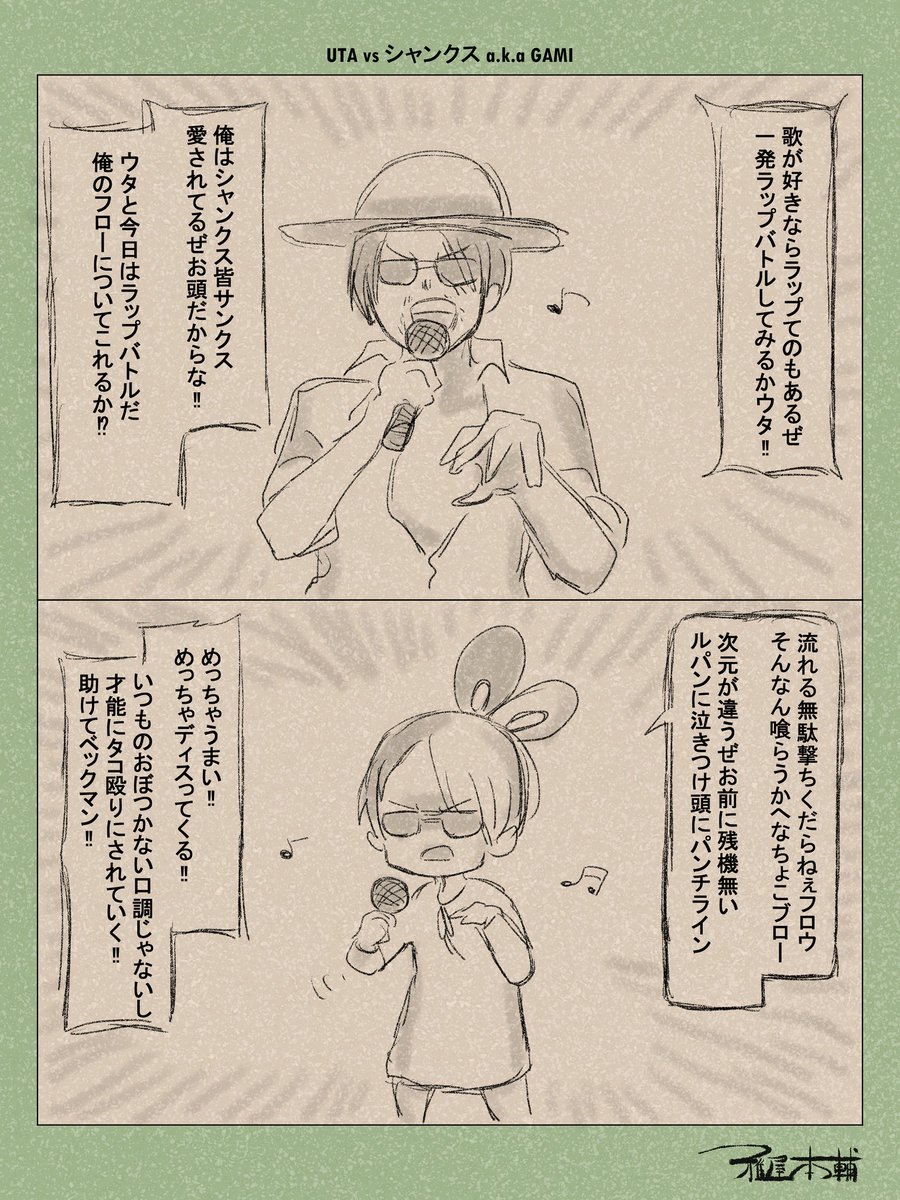 UTA vs シャンクス a.k.a GAMI
歌が好きならラップてのもあるぜ
一発ラップバトルしてみるかウタ!!
俺はシャンクス皆サンクス
愛されてるぜお頭だからな!!
ウタと今日はラップバトルだ
俺のフローについてこれるか!?
流れる無駄撃ちくだらねぇフロウ
そんなん喰らうかへなちょこブロー
次元が違うぜお前に残機無い
ルパンに泣きつけ頭にパンチライン
めっちゃうまい!!
めっちゃディスってくる!!
いつものおぼつかない口調じゃないし
才能にタコ殴りにされていく!!
助けてベックマン!!